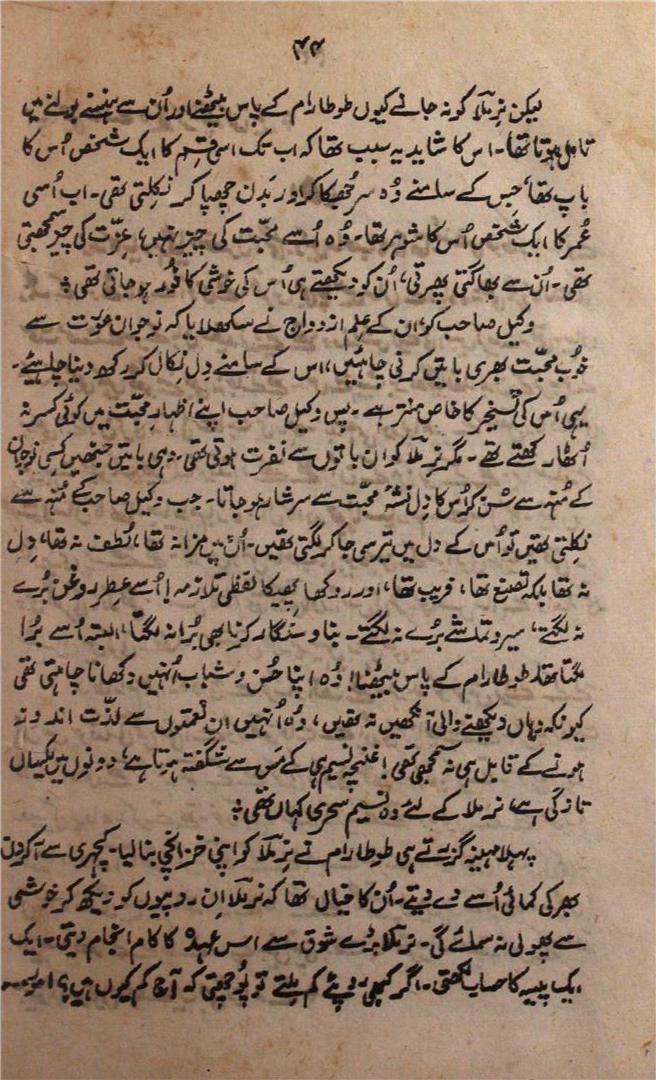 ۴۴
لیکن نرملا کو نہ جانے کیوں طوطا رام کے پاس بیٹھنے اور اُن سے ہنسنے بولنے میں
تامل ہوتا تھا۔ اس کا شاید یہ سبب تھا کہ اب تک اسی قسم کا ایک شخص اُس کا
باپ تھا، جس کے سامنے وُہ سر جُھکا کر اور بدن چُھپا کر نکلتی تھی۔ اب اُسی
عُمر کا ایک شخص اُس کا شوہر تھا۔ وُہ اُسے محبّت کی چیز نہیں، عِزّت کی چیز سمجھتی
تھی۔ اُن سے بھاگتی پھرتی، اُن کو دیکھتے ہی اُس کی خوشی کافُور ہو جاتی تھی ؛
وکیل صاحب کو، اُن کے عِلمِ ازدواج نے سکھلایا کہ نوجوان عورت سے
خوُب محبّت بھری باتیں کرنی چاہئیں، اس کے سامنے دِل نِکال کر رکھ دینا چاہئیے۔
یہی اُس کی تسخیر کا خاص منتر ہے۔ پس وکیل صاحب اپنے اظہارِ محبّت میں کوئی کسر نہ
اُٹھا رکھتے تھے۔ مگر نِرملا کو ان باتوں سے نفرت ہوتی تھی۔ وہی باتیں جنھیں کِسی نوجوان
کے مُنہ سے سُن کر اُس کا دِل نشۂ محبّت سے سرشار ہو جاتا۔ جب وکیل صاحب کے مُنہ سے
نِکلتی تھیں تو اُس کے دل میں تیر سی جا کر لگتی تھیں۔ اُن میں مزا نہ تھا، لُطف نہ تھا، دِل
نہ تھا بلکہ تصنع تھا، فریب تھا، اور روکھا پھیکا لفظی تلازمہ! اُسے عِطر روغن بُرے
نہ لگتے، سیر و تماشے بُرے نہ لگتے۔ بناو سنگار کرنا بھی بُرا نہ لگتا، البتہ اُسے بُرا
لگتا تھا، طوطا رام کے پاس بیٹھنا! وُہ اپنا حُسن و شباب اُنہیں دِکھانا چاہتی تھی
کیونکہ وہاں دیکھنے والی آنکھیں نہ تھیں، وُہ اُنہیں ان نعمتوں سے لذّت اندوز نہ
ہونے کے قابل ہی نہ سمجھتی تھی! غنچہ نسیم ہی کے مَس سے شگفتہ ہوتا ہے، دونوں میں یکساں
تازگی ہے، نرملا کے لئے وُہ نسیمِ سحری کہاں تھی ؛
پہلا مہینہ گزرتے ہی طوطا رام نے نِرملا کو اپنی خزانچی بنا لیا۔ کچہری سے آ کر دن
بھر کی کمائی اُسے دے دیتے۔ اُن کا خیال تھا کہ نرملا اِن روپیوں کو دیکھ کر خوشی
سے پھولی نہ سمائے گی۔ نرملا بڑے شوق سے اس عہدہ کا کام انجام دیتی۔ ایک
ایک پیسہ کا حساب لکھتی۔ اگر کبھی روپئے کم ملتے تو پُوچھتی کہ آج کم کیوں ہیں؟